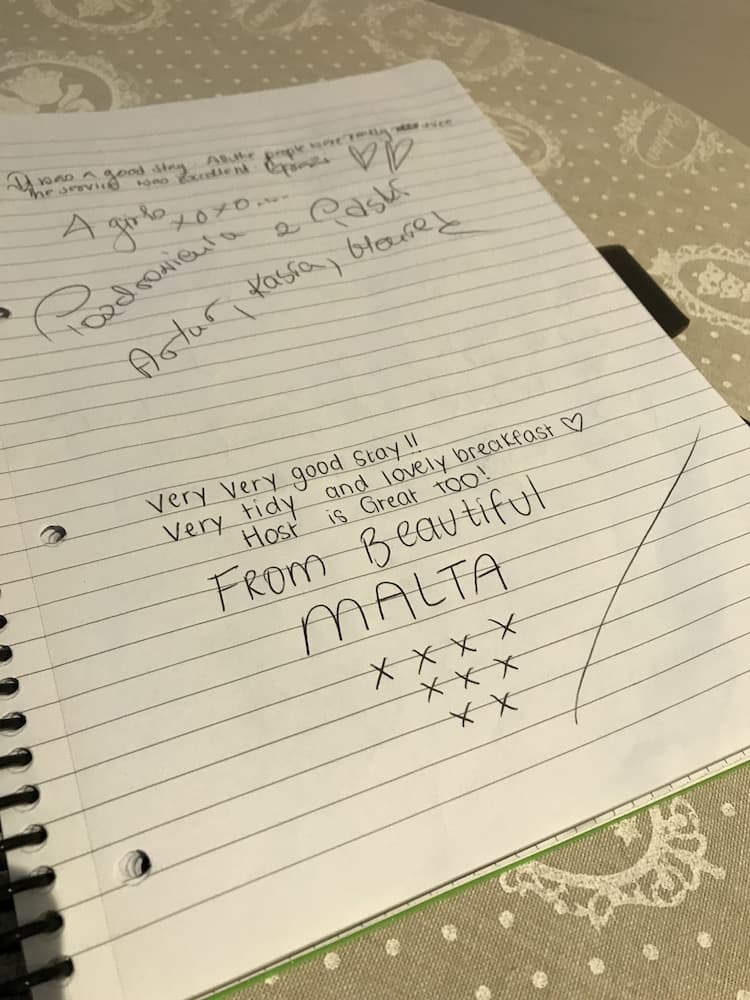 It was a good stay All the people were really nice
The service was excellent
A girls xoxo....
Pozdrowienia z Polski
Artur, Kasia, 
Very Very good stay!!
Very tidy and lovely breakfast ♡
Host is Great too!
From Beautiful
MALTA
x x x x
x x x
x x